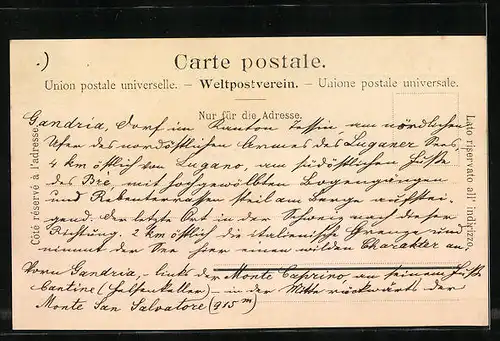 .)
Carte postale.
Union postale universelle. — Weltpostverein. — Unione postale universale.
Nur für die Adresse.
Côté réservé à l'adresse.
Lato riservato all' indirizzo.
Gandria, Dorf im Kanton Tessin, am nördlichen
Ufer des nordöstlichen Armes des Luganer Sees,
4 km östlich von Lugano, am südöstlichen Fuße
des Brè, mit hochgewölbten Bogengängen
und Rebenterrassen steil am Berge aufstei-
gend. Der letzte Ort in der Schweiz nach dieser
Richtung. 2 km östlich die italienische Grenze und
nimmt der See hier einen wilden Charakter an.
Vorn Gandria, - links der Monte Caprino, an seinem Fuße
Cantine (Felsenkeller) - in der Mitte rückwärts der
Monte San Salvatore (915 m)